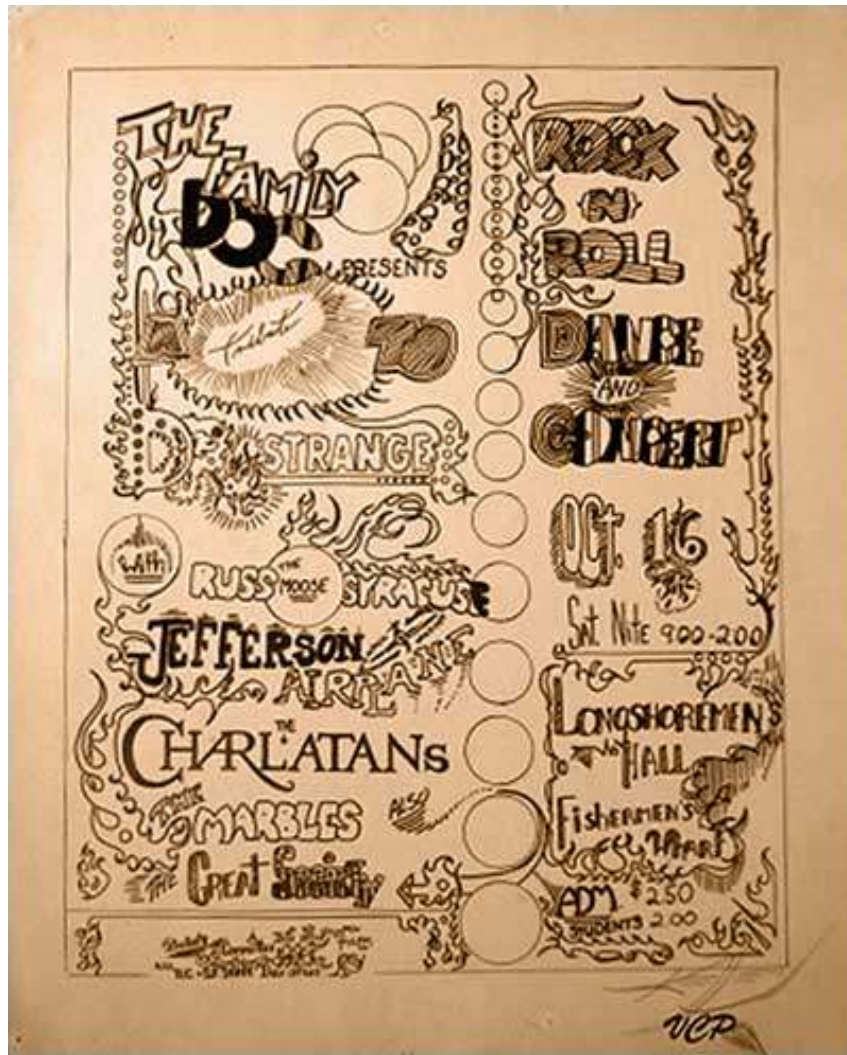 THE
FAMILY
DOG
PRESENTS
A Tribute TO
DR. STRANGE
with
RUSS THE MOOSE SYRACUSE
JEFFERSON
AIRPLANE
THE
CHARLATANS
THE
MARBLES
ALSO
THE GREAT Society
ROCK
N
ROLL
DANCE
AND
CONCERT
OCT. 16
Sat Nite 900-200
LONGSHOREMEN'S
HALL
FisHERMEN'S
WHARF
ADM $2.50
STUDENTS 2.00
VCP